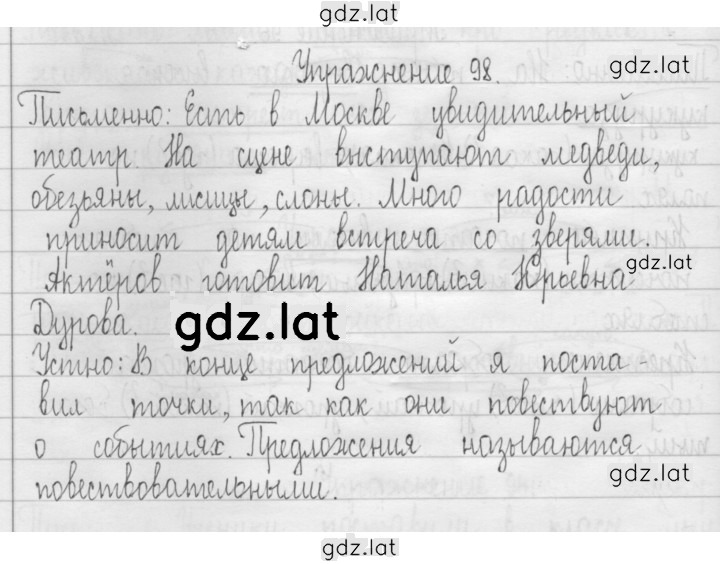 gdz.lat
Упражнение 98.
gdz.lat
Письменно: Есть в Москве увидительный
театр. На сцене выступают медведи,
обезьяны, лисицы, слоны. Много радости
приносит детям встреча со зверями.
Актёров готовит Наталья Юрьевна
gdz.lat
Дурова.
gdz.lat
Устно: В конце предложений я поста-
вил точки, так как они повествуют
о событиях. Предложения называются
gdz.lat
повествовательными.
gdz.lat